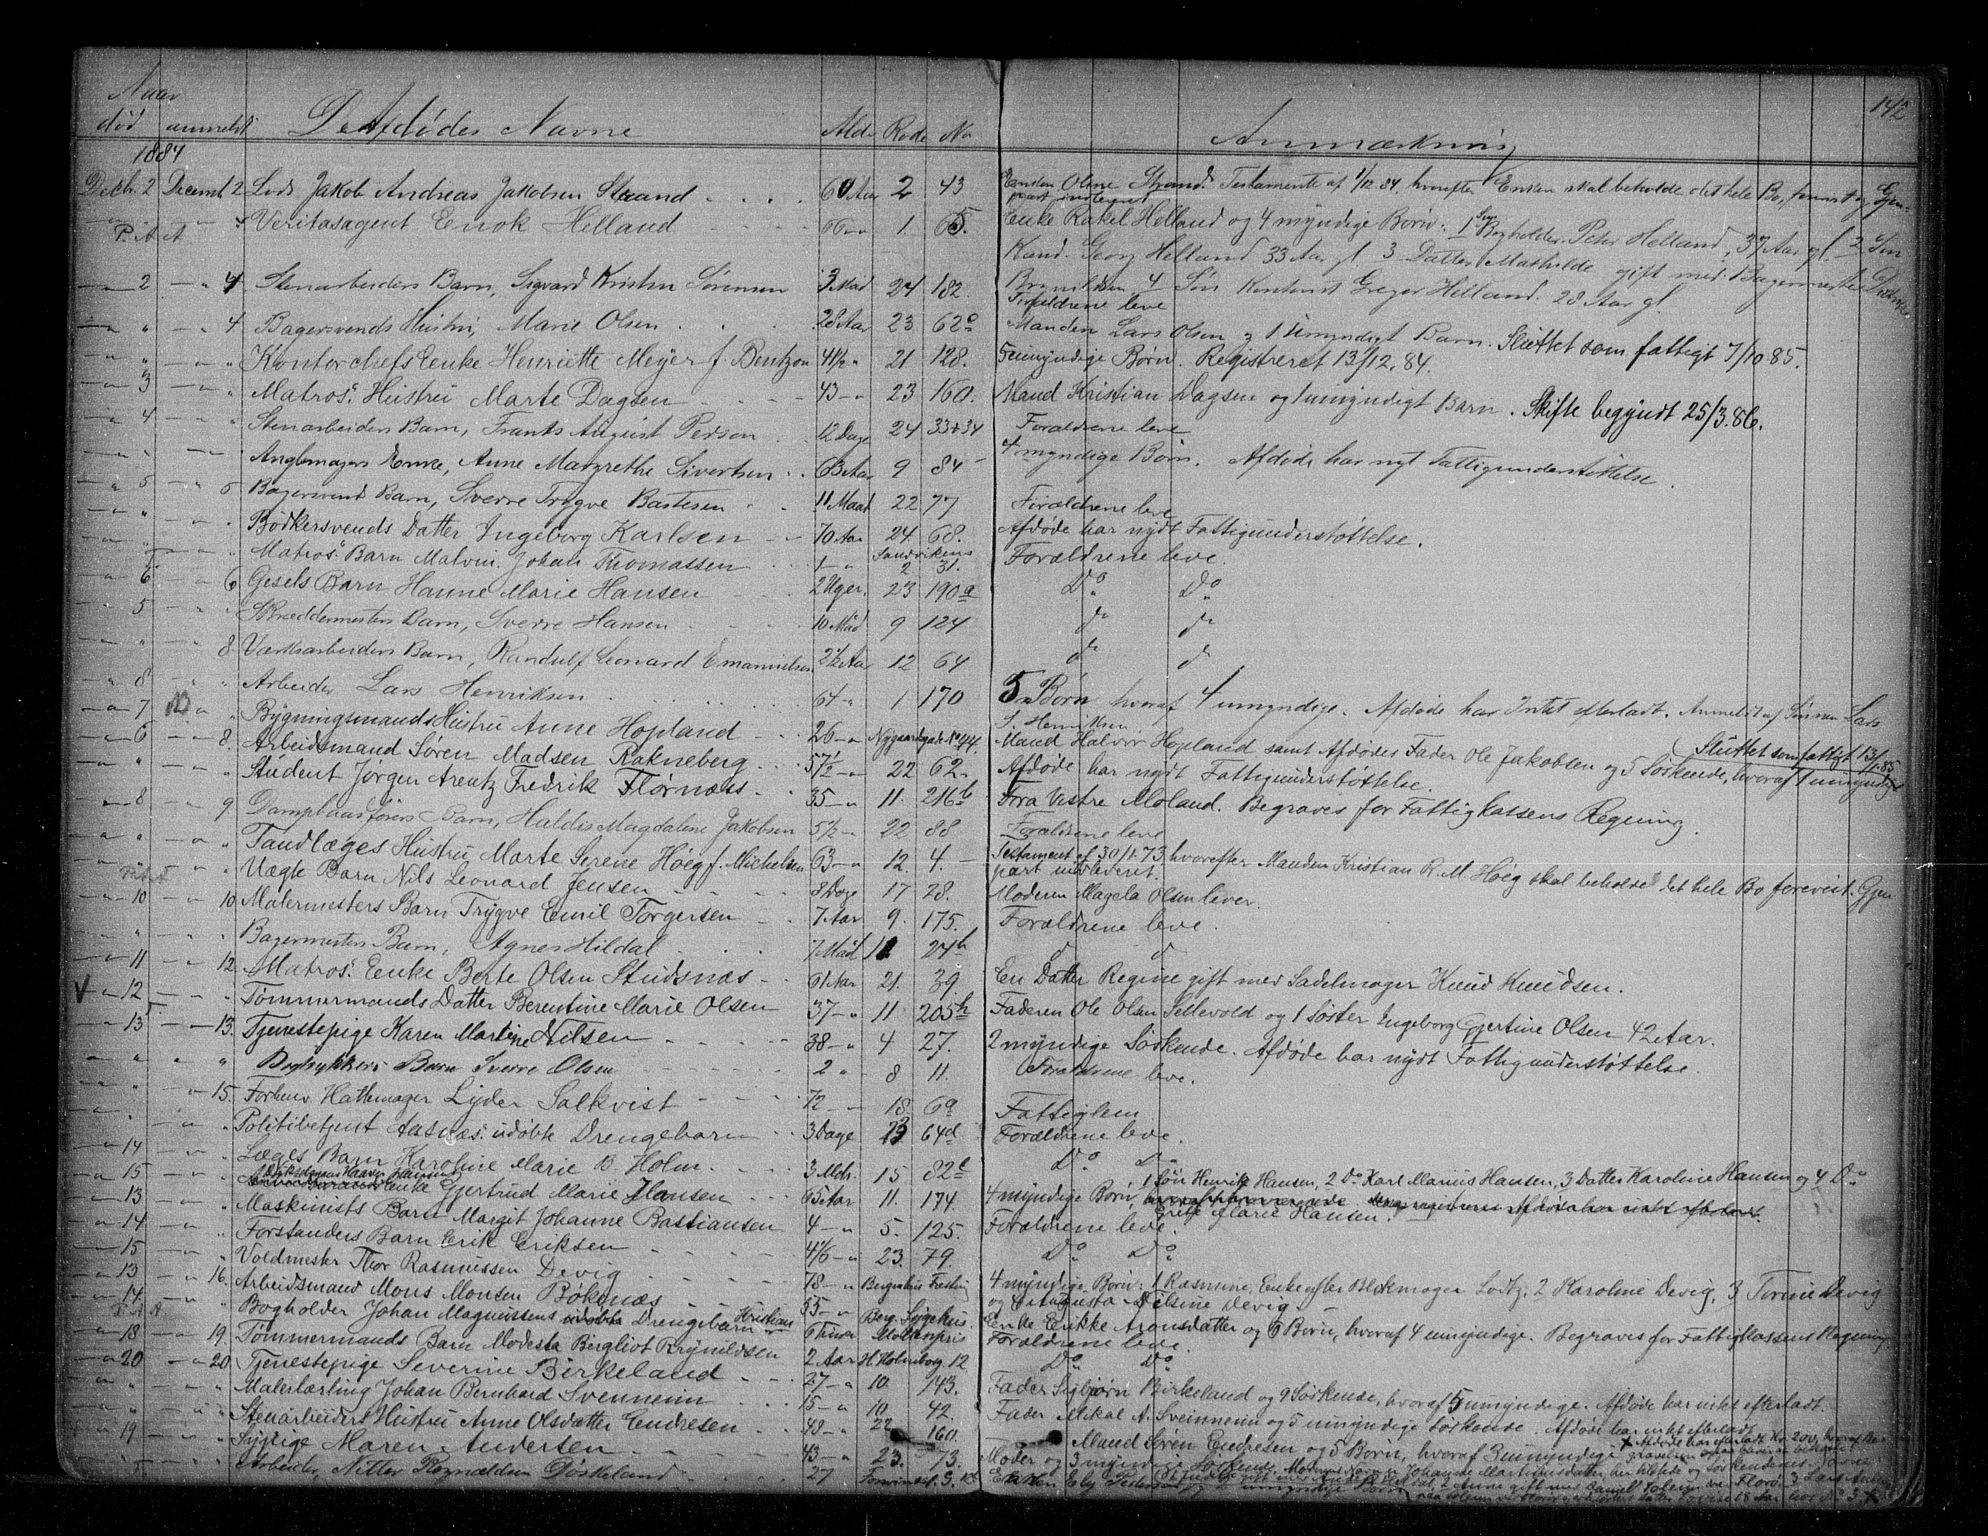 142
Naar
død anmeldt De Afdødes Navne Alder Rode No Anmærkning
1884
Decbr. 2 Decemb 2 Lods Jakob Andreas Jakobsen Strand 60 Aar 2 43 Enken Oline Strand. Testamente af 1/12 84, hvorefter Enken skal beholde det hele Bo, forevist og Gjen-
part indleveret
4 Veritasagent Enok Helland 66 1 65. Enke Rakel Helland og 4 myndige Børn: 1 Søn Bogholder Peter Helland, 37 Aar gl. 2 Søn
Kand. Georg Helland 33 Aar gl 3 Datter Mathilde gift med Bagermester
4 Søn Kontorist Greger Helland. 28 Aar gl.
2 4 Stenarbeiders Barn, Sigvard Kristen Sørensen 3 Mdr 24 182 Forældrene leve
4 Bagersvends Hustru, Marie Olsen 28 Aar 23 62c Manden Lars Olsen og 1 Umyndigt Barn. Sluttet som fattigt 7/10 85.
Kontorchefs Enke Henriette Meyer f. Bentzon 41½ 21 128. 5 umyndige Børn. Registreret 13/12.84.
3 Matros. Hustru Marte Dagsen 43 23 160. Mand Kristian Dagsen og 1 umyndigt Barn. Skifte begyndt 25/3.86.
4 Stenarbeiders Barn, Frants August Person 12 Dage 24 33+34 Forældrene leve
Anglemagers Enke, Anne Margrethe Sivertsen 9 84 4 myndige Børn. Afdøde har nydt Fattigunderstøttelse.
5 5 Bagersvend Barn, Sverre Trygve Bastesen 11 Maad 22 77 Forældrene leve
Bødkersvends Datter Ingeborg Karlsen 70 Aar 24. 68. Afdøde har nydt Fattigunderstøttelse.
Matros. Barn Malvin Johan Thomassen 1 Sandvikens 2 31. Forældrene leve.
6 6 Gesels Barn Hanne Marie Hansen 2 Uger. 23 190a Do Do
5 Skreddermesters Barn, Sverre Hansen 10 Md 9 124 do do
8 Værksarbeiders Barn, Randulf Leonard Emanuelsen 2½ Aar 12 64 do do
8 Arbeider Lars Henriksen 64 1 170 5 Børn hvoraf 4 umyndige. Afdøde har Intet efterladt. Anmeldt af Sønnen Lars
S. Henriksen
7 10 Bygningsmands Hustru Anne Hopland 26 Nygaardsgade No 44. Mand Halvor Hopland samt Afdødes Fader Ole Jakobsen og 5 Søskende, hvoraf 1 umyndig
(Sluttet som fattigt 13/1 85
6 8. Arbeidsmand Søren Madsen Rakneberg 57½ 22 62. Afdøde har nydt Fattigunderstøttelse.
Student Jørgen Arentz Fredrik Flørnæss 35 11. 216b Fora Vestre Moland. Begraves for Fattigkassens Regning.
8 9 Dampbaadførers Barn, Haldis Magdalene Jakobsen 5½ 22 88 Forældrene leve
Tandlæges Hustru Marte Serene Høeg f. Michelsen 63 12. 4. Testament af 30/11.73, hvorefter Manden Kristian R. M. Høeg skal beholde det hele Bo forevist. Gjen
part indleveret.
Uægte Barn Nils Leonard Jensen 8 Dage 17 28. Moderen Magela Olsen lever.
10 10 Malermesters Barn Trygve Emil Torgersen 7 Aar 9. 175. Forældrene leve.
Bagermesters Barn, Agnes Hildal 7 Md 11 24b do do
11 12. Matros. Enke Berte Olsen Studsnæs 61 Aar 21. 39. En Datter Regine gift med Sadelmager Knud Knudsen.
V 12 Tømmermands Datter Berentine Marie Olsen 37 11 205h Faderen Ole Olsen Sellevold og 1 Søster Ingeborg Gjertine Olsen 42 Aar.
13 13. Tjenestepige Karen Martine Nilsen 38 4 27. 2 myndige Søskende. Afdøde har nydt Fattigunderstøttelse.
Bogtrykkers Barn Sverre Olsen 2 8 11. Forældrene leve.
15. Forhenv. Hattemager Lyder Salkvist 72 18 69 Fattiglem
Politibetjent Aasnæs. udøbte Drengebarn 3 Dage 23 64d Forældrene leve.
14 Læges Barn Karoline Marie B. Holm. 3 Mdr. 15 82c Do Do
15 Enke Gjertrud Marie Hansen 65 Aar 11. 174. 4 myndige Børn, 1 Søn Henrik Hansen, 2 Do Karl Marius Hansen, 3 Datter Karoline Hansen og 4 Do
Marie Hansen.
13 Maskinists Barn Margit Johanne Bastiansen 4 5. 125. Forældrene leve.
14 Forstanders Barn Erik Eriksen 4 23. 79. Do Do
15 Voldmester Thor Rasmussen Devig 78 Bergenhus Fæstn 4 myndige Børn: 1 Rasmine, Enke efter Blokmager 2 Karoline Devig, 3 Torine Devig
og 4 Augusta Nilsine Devig
13 16. Arbeidsmand Mons Monsen Bøkenæs 55 Berg. Sygehus. Enke Erikke Aronsdatter og 6 Børn, hvoraf 4 umyndige. Begraves for Fattigkassens Regning
14 Bogholder Johan Magnussens udøbte Drengebarn Kristian 6 Timer Forældrene leve.
18 19. Tømmermands Barn Modesta Bergliot Brynildsen 2 Aar H. Holmbog. 12 Do Do
20 20 Tjenestepige Severine Birkeland 27 10 143. Fader Sigbjørn Birkeland og 9 Søskende, hvoraf 5 umyndige. Afdøde har intet efterladt.
Malerlærling Johan Bernhard Svenneim 15 10 42. Fader Mikal A. Sveinneim og 5 umyndige Søskende. Afdøde har intet efterladt
Stenarbeiders Hustru Anne Olsdatter Endresen 48 22 160. Mand Søren Endresen og 5 Børn, hvoraf 3 umyndige
19 Syige Maren Andersen 43 23. 73. Moder og 3 myndige Søskende.
Arbeider, Nitter Døskeland 27 Enken Ely Pedersd.